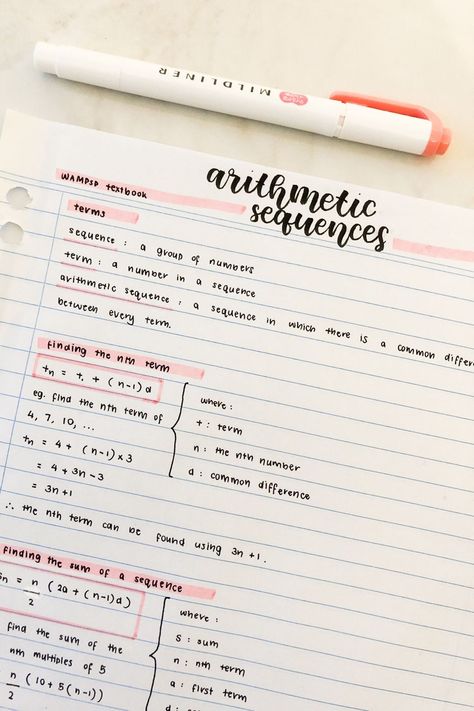 MILDLINER
arithmetic
sequences
WAMPSP textbook
terms
sequence : a group of numbers
term : a number in a sequence
arithmetic sequence : a sequence in which there is a common differe
between every term.
finding the nth term
tn = t1 + (n-1)d
eg. find the nth term of
4, 7, 10, ...
tn = 4 + (n-1)×3
= 4 + 3n - 3
= 3n+1
where:
t : term
n : the nth number
d : common difference
∴ the nth term can be found using 3n+1.
finding the sum of a sequence
Sn = n/2 (2a + (n-1)d)
find the sum of the
nth multiples of 5
n/2 (10 + 5(n-1))
where:
S : sum
n : nth term
a : first term